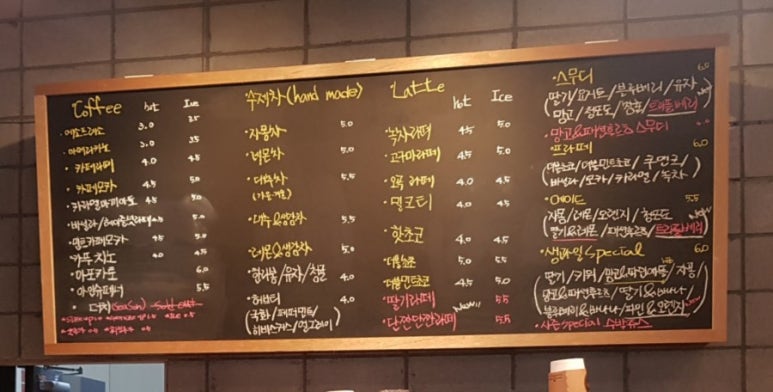 Coffee hot Ice
에소프레소 3.5
아메리카노 3.0 3.5
카페라떼 4.0 4.5
카페모카 4.5 5.0
카라멜마끼아또 4.5 5.0
바닐라/헤이즐넛라떼 4.5 5.0
민트카페모카 4.5 5.0
카푸치노 4.0 4.5
아포카토 6.0
5.5
더치(Season) Sold out
수제차(hand made)
자몽차 5.0
레몬차 5.0
대추차 5.5
(가을·겨울)
대추&생강차 5.5
레몬&생강차 5.0
한라봉/유자/청귤 4.0
허브티 4.0
(국화/페퍼민트/
히비스커스/얼그레이)
Latte hot Ice
녹차라떼 4.5 5.0
고구마라떼 4.5 5.0
오곡라떼 4.0 4.5
밀크티 4.0 4.5
핫초코 4.0 4.5
더블초코 5.0 5.5
더블민트초코 4.5 5.0
딸기라떼 5.5
단짠단짠라떼 New!! 5.5
스무디 6.0
(딸기/요거트/블루베리/유자/
망고/청포도/트리플베리)
망고&패션후르츠 스무디
프라페 6.0
(더블초코/더블민트초코/쿠앤크/
바닐라/모카/카라멜/녹차)
에이드 5.5
(자몽/레몬/오렌지/청포도
딸기&레몬/패션후르츠/트리플베리)
생과일 Special 6.0
(딸기/키위/자몽/
망고&패션후르츠/딸기&바나나/
블루베리&바나나/파인&오렌지)
시즌special 수박쥬스